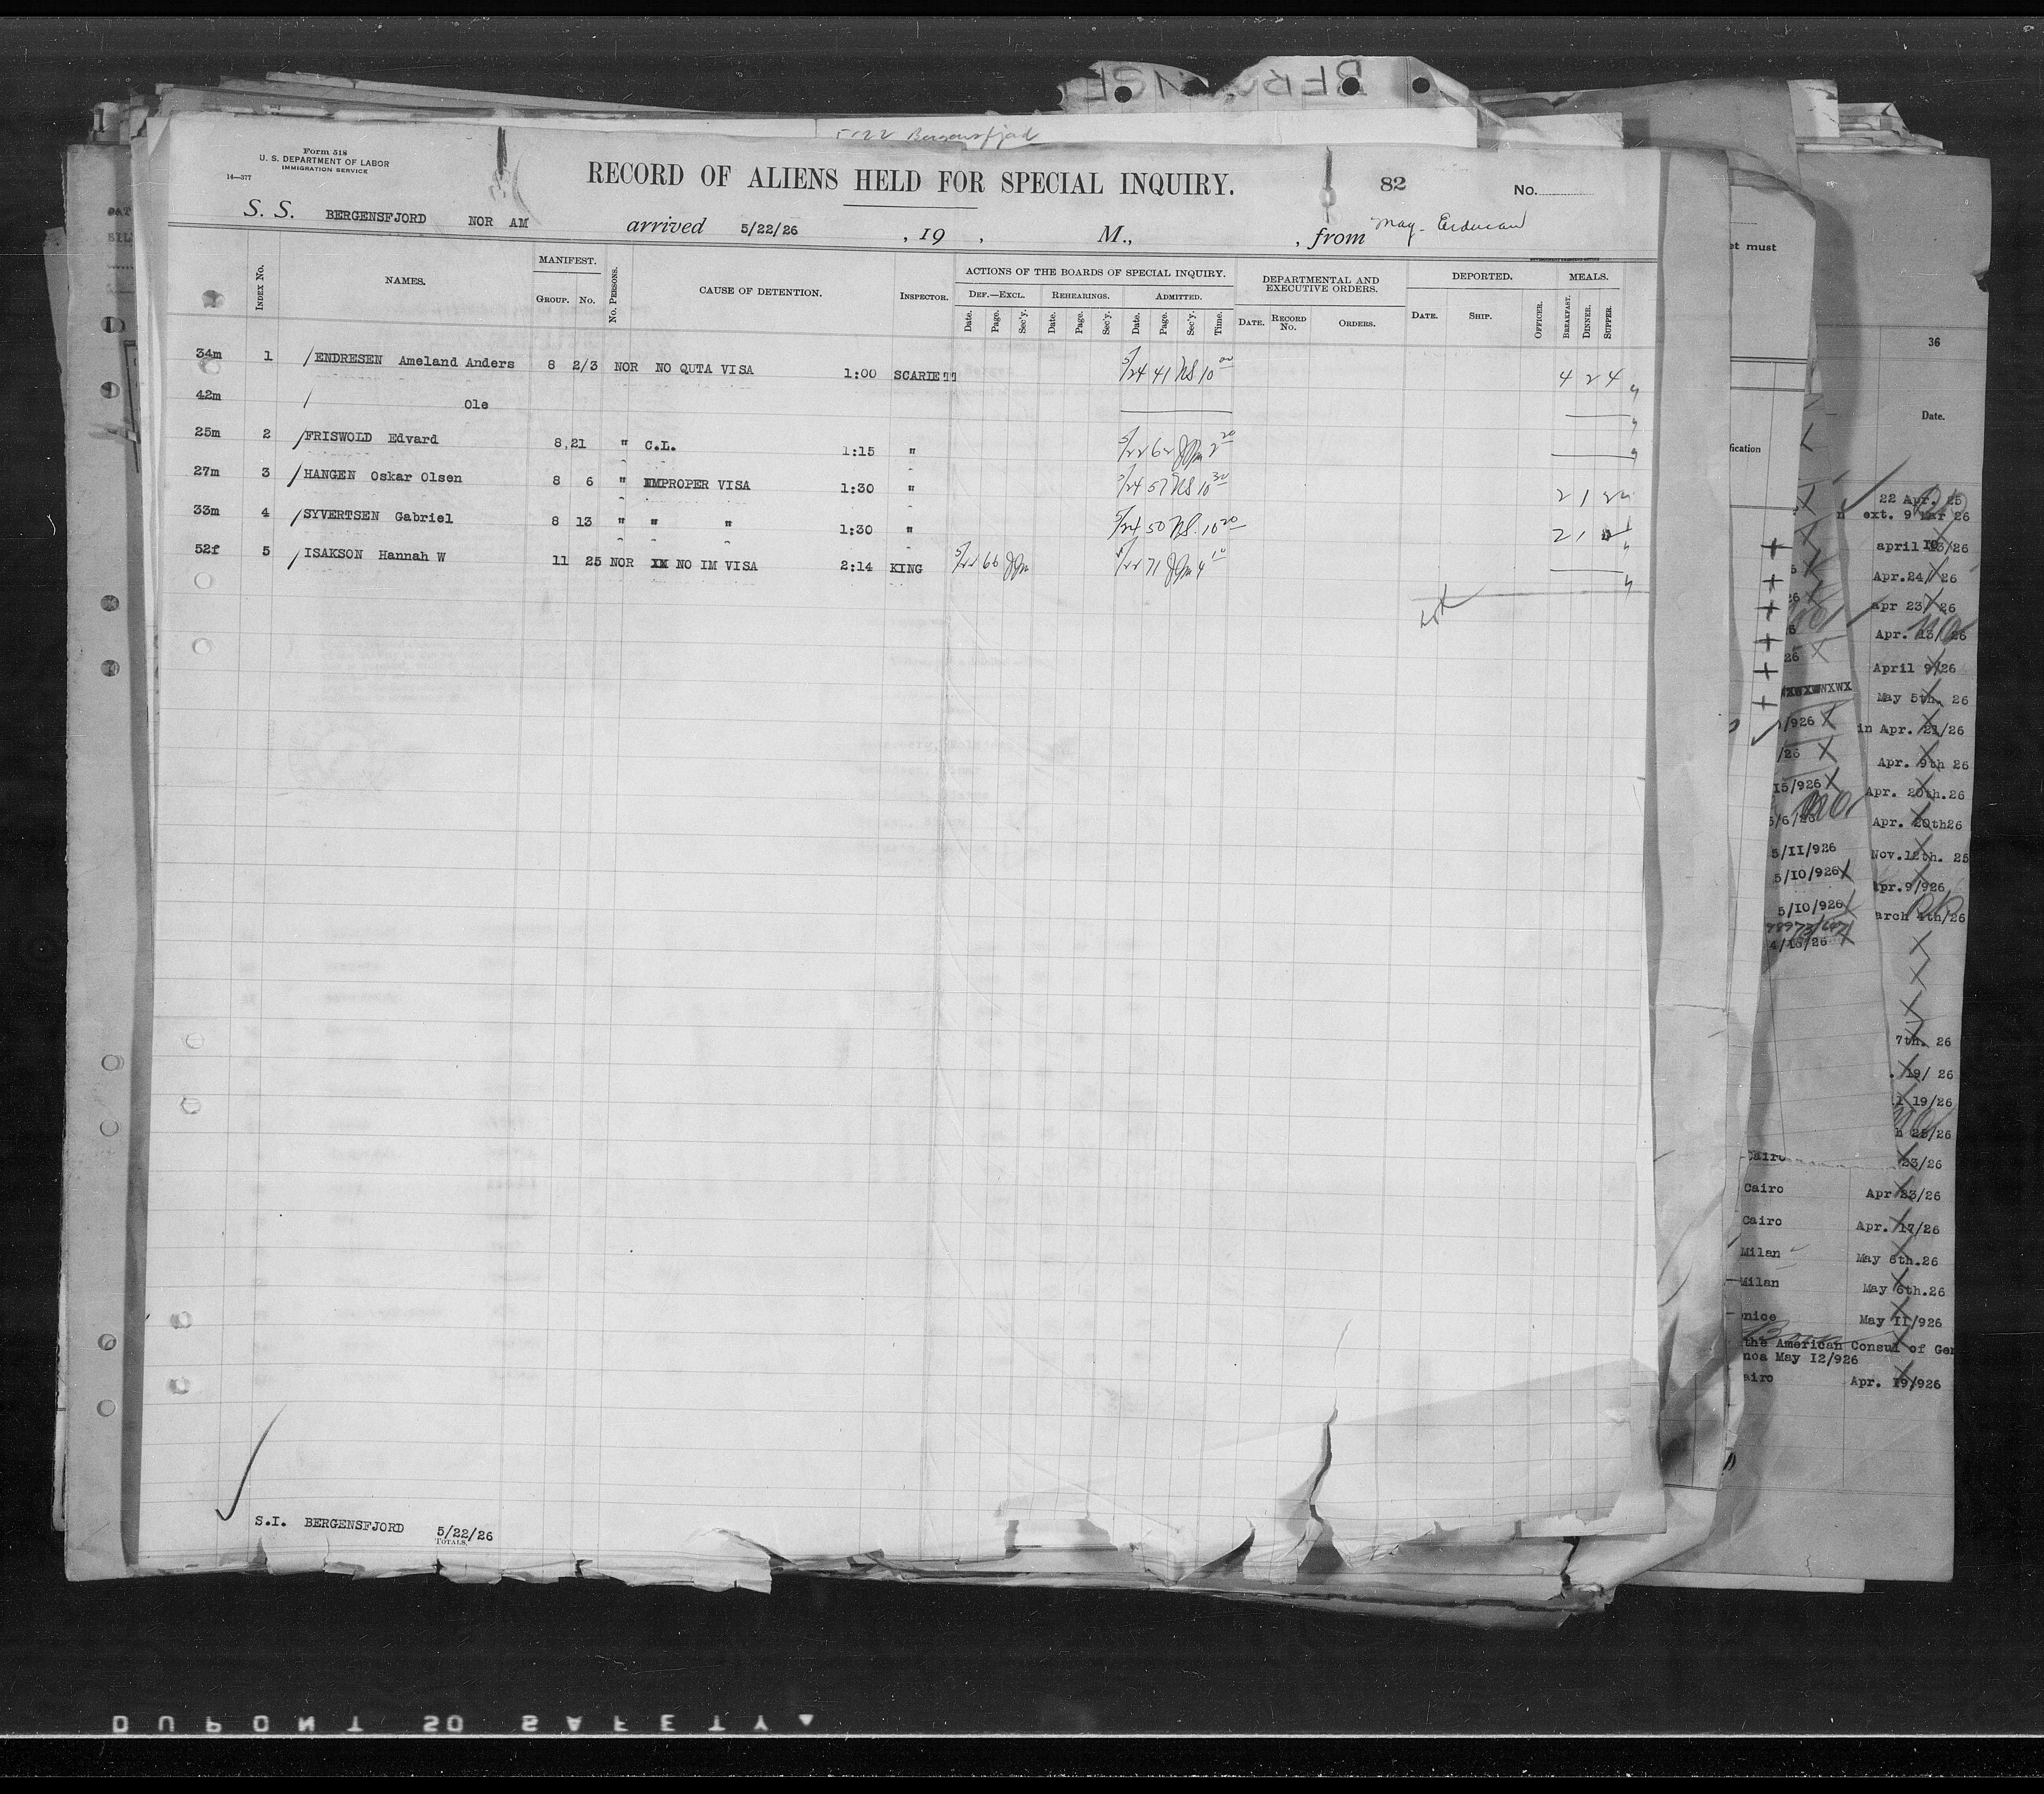 5/22 Bergensfjord
Form 518
U. S. DEPARTMENT OF LABOR
IMMIGRATION SERVICE
14—377
RECORD OF ALIENS HELD FOR SPECIAL INQUIRY.
82
No.
S. S. BERGENSFJORD NOR AM arrived 5/22/26 , 19 , M., , from May
INDEX No. NAMES. MANIFEST. GROUP. No. No. PERSONS. CAUSE OF DETENTION. INSPECTOR. ACTIONS OF THE BOARDS OF SPECIAL INQUIRY. DEPARTMENTAL AND EXECUTIVE ORDERS. DEPORTED. OFFICER. MEALS.
DEF.—EXCL. REHEARINGS. ADMITTED.
Date. Page. Sec'y. Date. Page. Sec'y. Date. Page. Sec'y. Time. DATE. RECORD No. ORDERS. DATE. SHIP. BREAKFAST. DINNER. SUPPER.
34m 1 /ENDRESEN Ameland Anders 8 2/3 NOR NO QUTA VISA 1:00 SCARIETT 5/24 41 NS 10 00 4 2 4
42m / Ole
25m 2 /FRISWOLD Edvard 8,21 " C.L. 1:15 " 5/22 62 JJm 2 20
27m 3 /HANGEN Oskar Olsen 8 6 " IMPROPER VISA 1:30 " 5/24 57 NS 10 30 2 1 2
33m 4 /SYVERTSEN Gabriel 8 13 " " " 1:30 " 5/24 50 NS. 10 20 2 1
52f 5 /ISAKSON Hannah W 11 25 NOR NO IM VISA 2:14 KING 5/22 66 JJm 5/22 71 JJm 4 10
S.I. BERGENSFJORD 5/22/26
TOTALS.
et must
fication
36
Date.
22 Apr. 25
ext. 9 Mar 26
Apr.24/ 26
apr 23/ 26
Apr. 13/ 26
April 9/26
May 5th. 26
in Apr. 21/26
Apr. 9th 26
Apr. 20th.26
Apr. 20th26
Nov.12th. 25
pr.9/926
arch 4th/26
/926
/26
15/926
5/6/26
5/11/926
5/10/926
5/10/926
4/16/26
7th. 26
. 19/ 26
l 19/26
h 25/26
Cairo 23/26
Cairo Apr 23/26
Cairo Apr. 17/26
Milan May 6th.26
Milan May 6th.26
nice May 11/926
the American Consul of Gen
noa May 12/926
airo Apr. 19/926
DUPONT 50 SAFETY